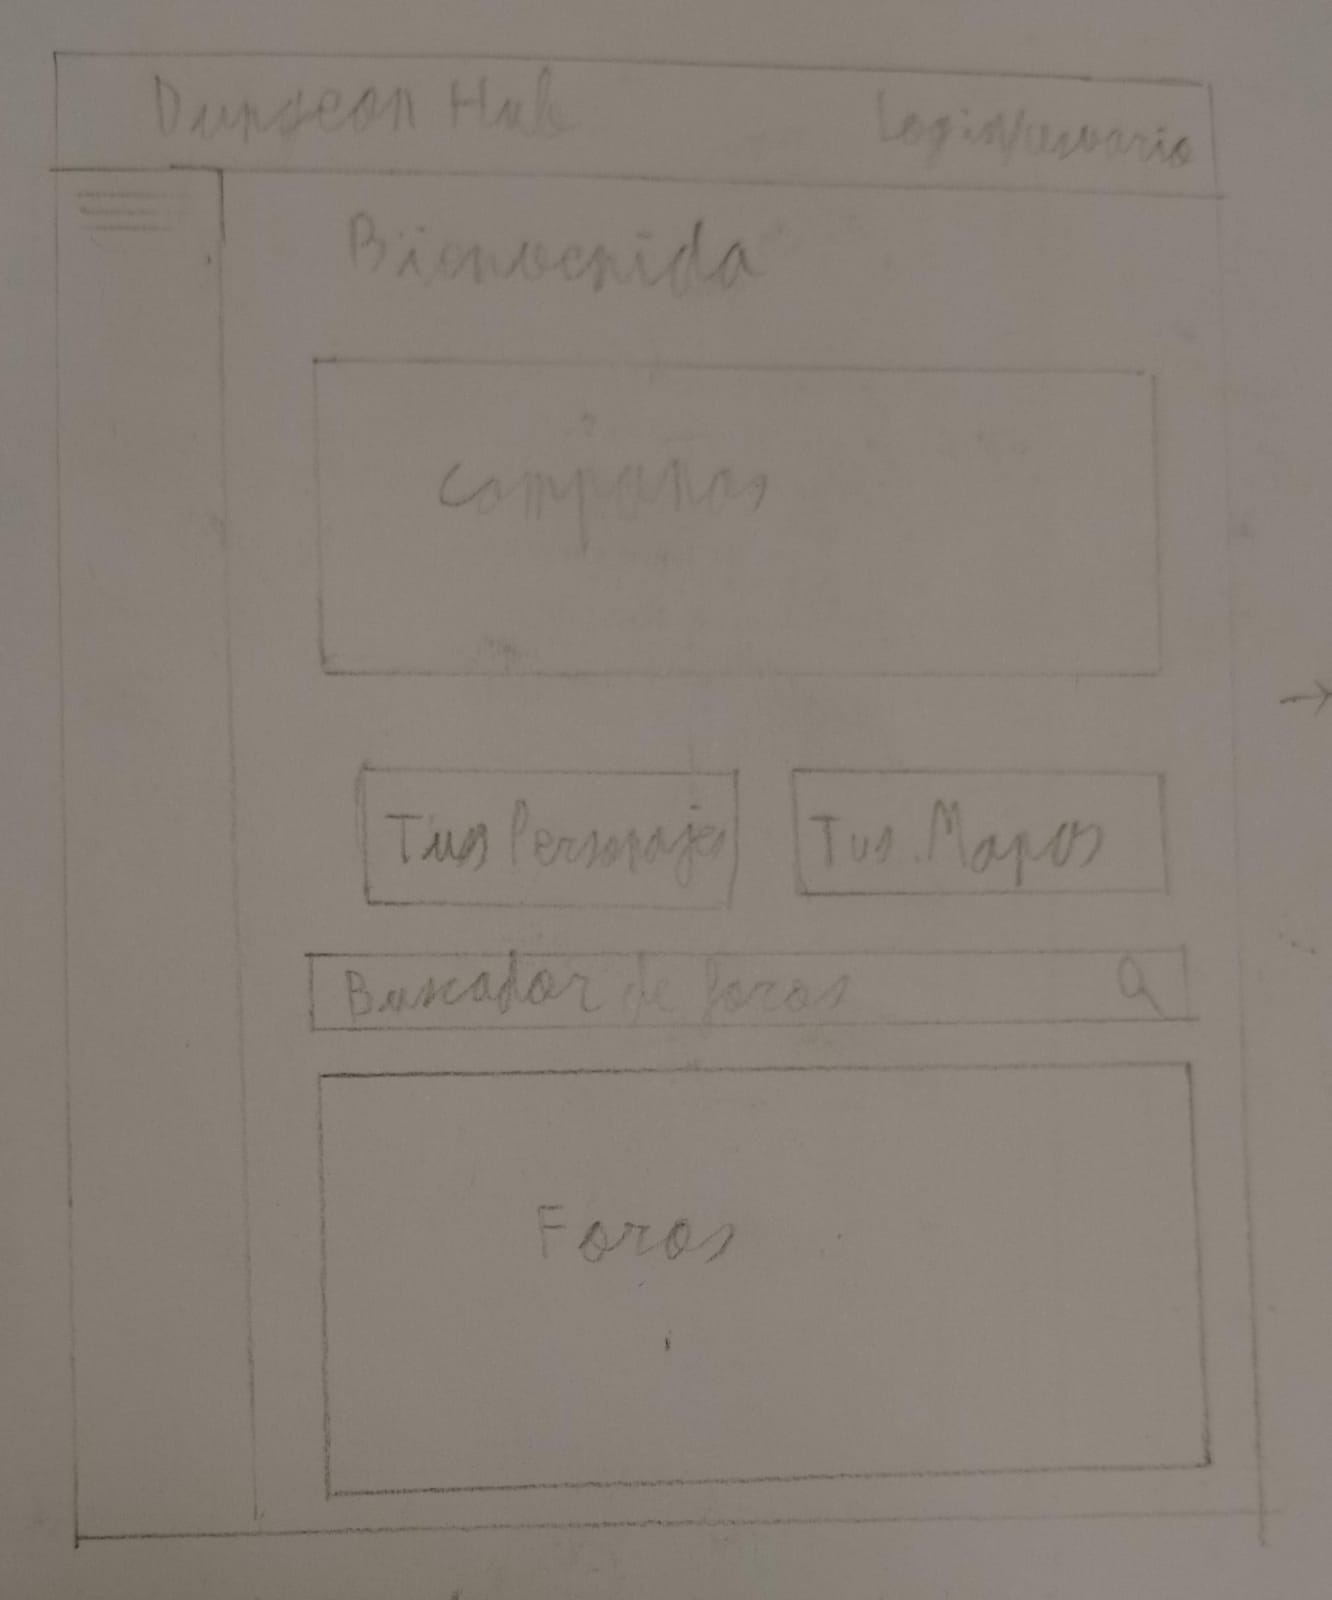 Dungeon Hub
Login/usuario
Bienvenida
Campañas
Tus Personajes
Tus Mapas
Buscador de foros
Foros